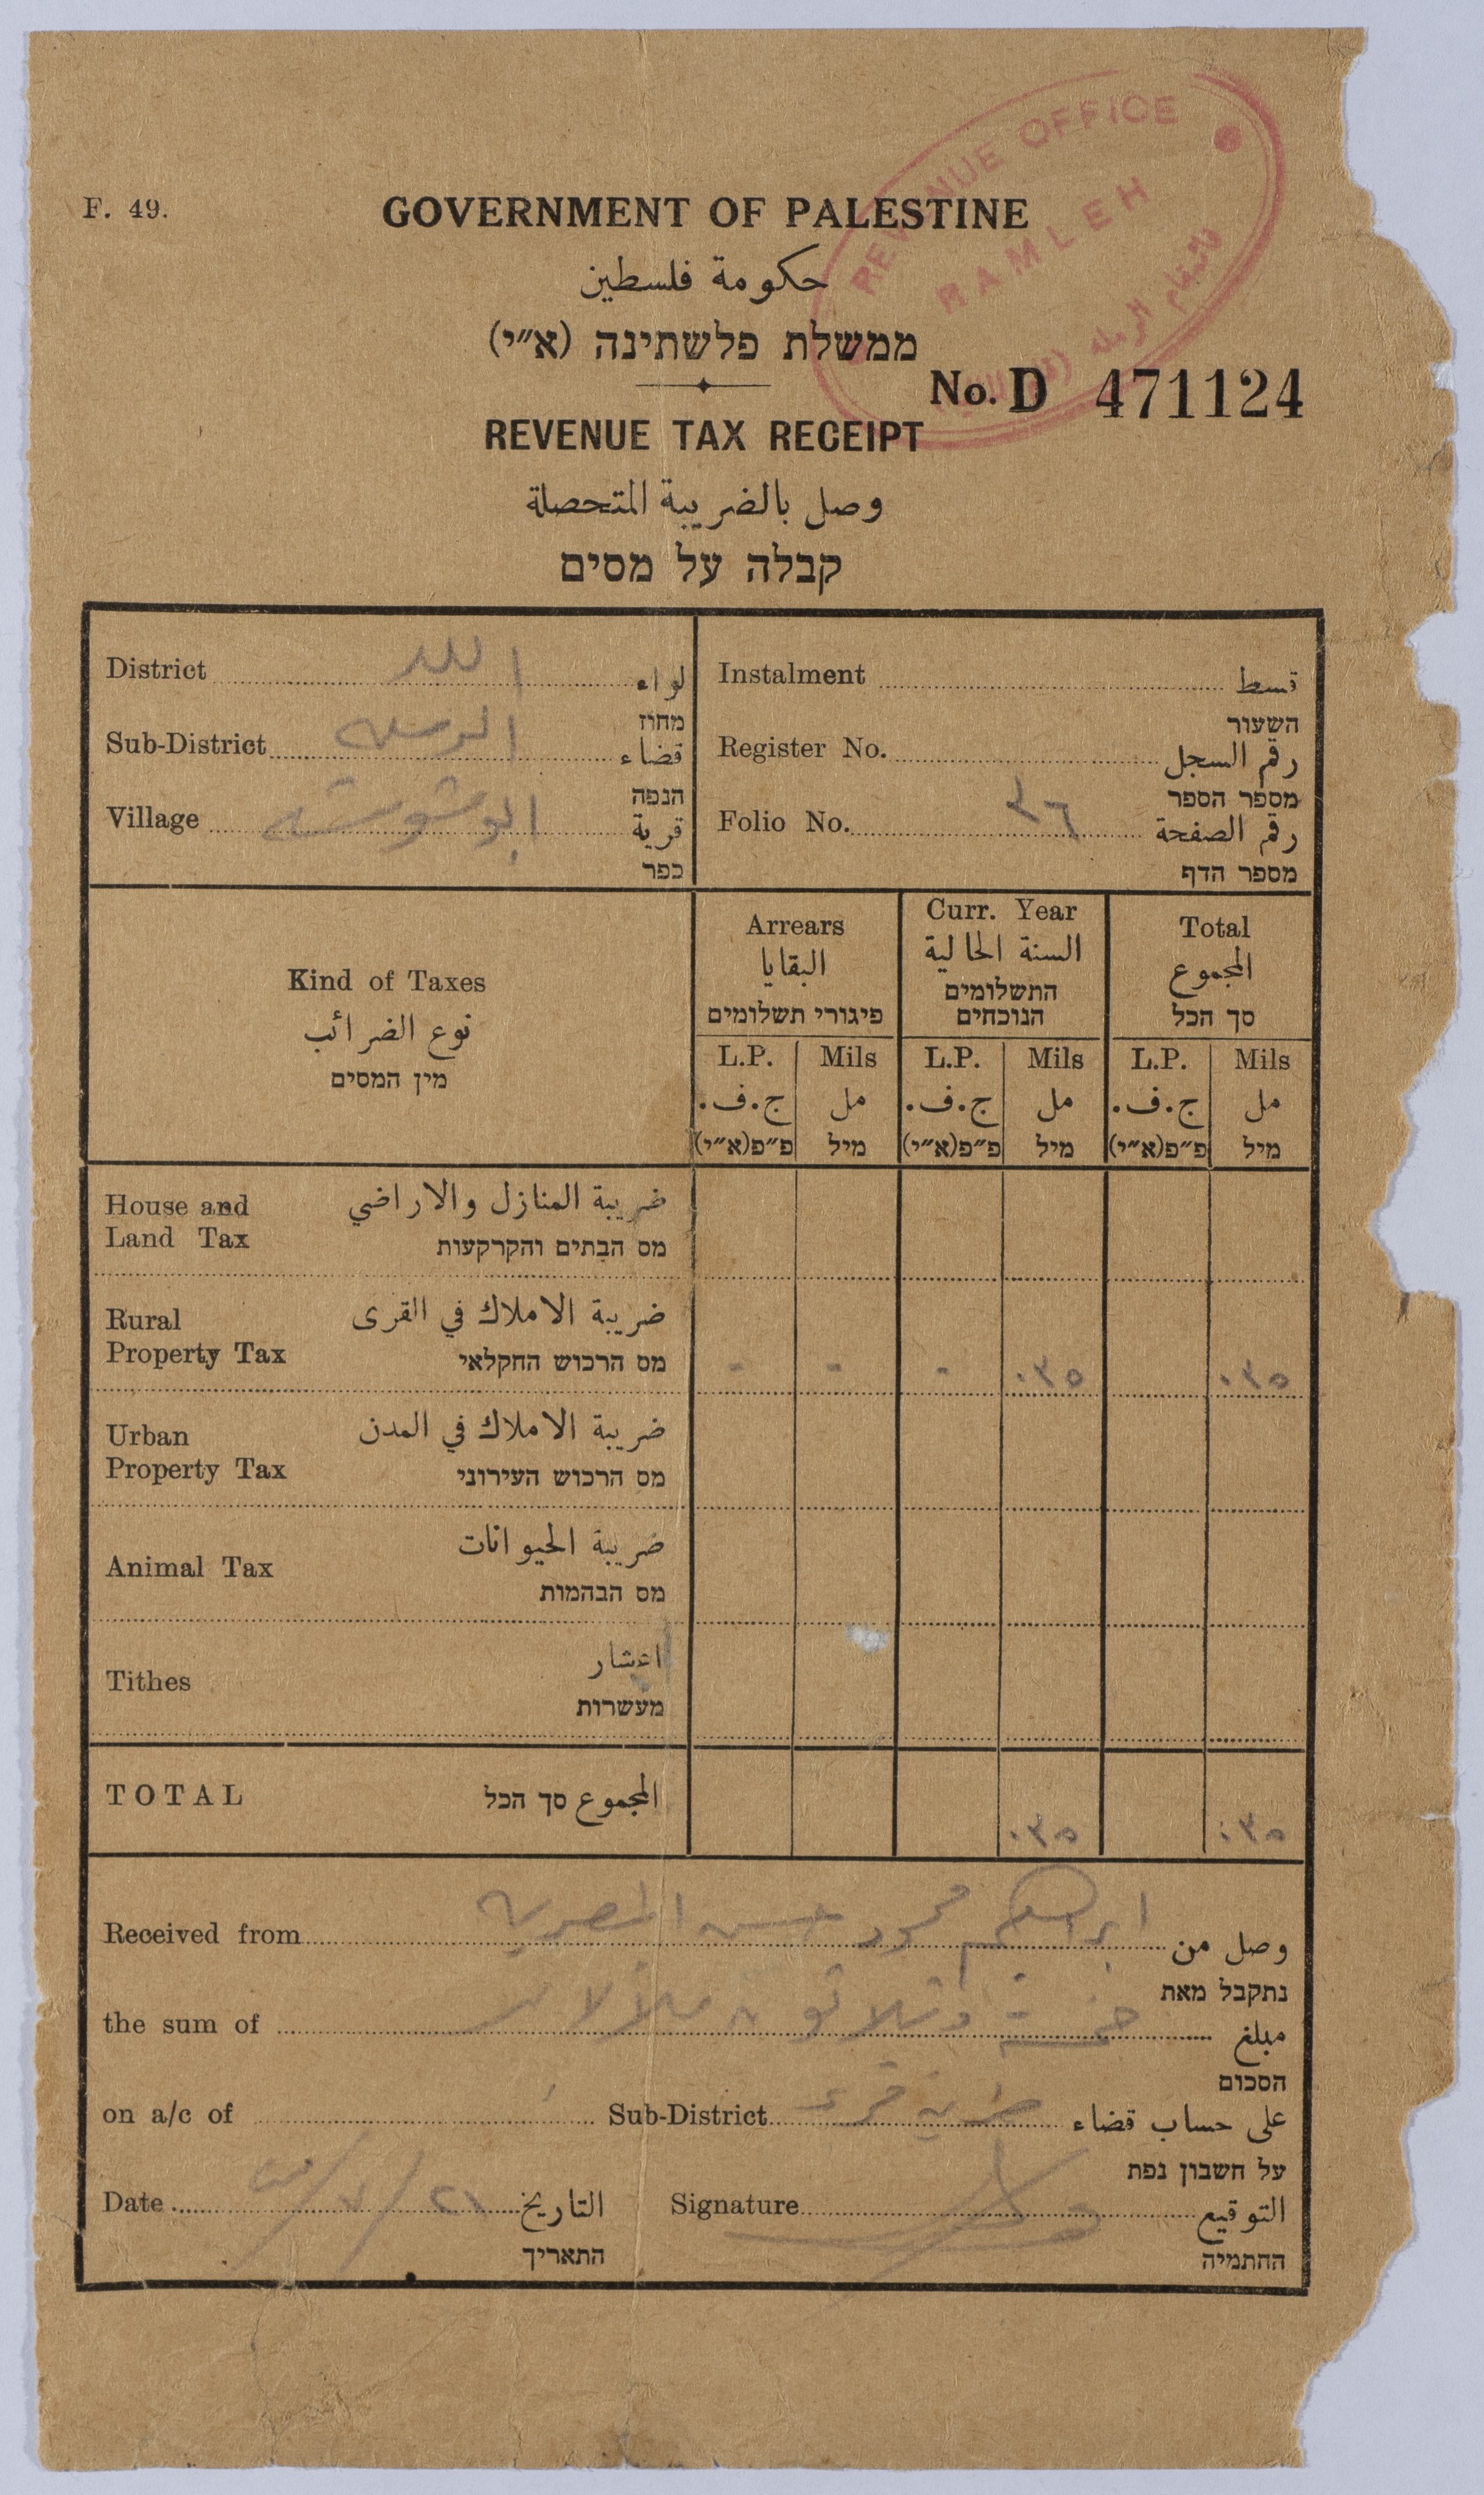 REVENUE OFFICE
RAMLEH
F. 49.
GOVERNMENT OF PALESTINE
حكومة فلسطين
ממשלת פלשתינה (א״י)
No. D 471124
REVENUE TAX RECEIPT
وصل بالضريبة المتحصلة
קבלה על מסים
District اللد لواء
מחוז
Sub-District الرمله قضاء
הנפה
Village ابو شوشه قرية
כפר
Instalment قسط
השעור
Register No. رقم السجل
מספר הספר
Folio No. ٣٦ رقم الصفحة
מספר הדף
Kind of Taxes
نوع الضرائب
מין המסים
Arrears
البقايا
פיגורי תשלומים
Curr. Year
السنة الحالية
התשלומים
הנוכחים
Total
المجموع
סך הכל
L.P. Mils L.P. Mils L.P. Mils
ج.ف. مل ج.ف. مل ج.ف. مل
פ״פ(א״י) מיל פ״פ(א״י) מיל פ״פ(א״י) מיל
House and ضريبة المنازل والاراضي
Land Tax מס הבתים והקרקעות
Rural ضريبة الاملاك في القرى
Property Tax מס הרכוש החקלאי - - - ٠٣٥ ٠٣٥
Urban ضريبة الاملاك في المدن
Property Tax מס הרכוש העירוני
Animal Tax ضريبة الحيوانات
מס הבהמות
Tithes اعشار
מעשרות
TOTAL المجموع סך הכל ٠٣٥ ٠٣٥
Received from ابراهيم محمود حسن المصريه وصل من
נתקבל מאת
the sum of خمسة وثلاثون ملا لا غير مبلغ
הסכום
on a/c of Sub-District ضريبة قرى على حساب قضاء
על חשבון נפת
Date التاريخ Signature التوقيع
התאריך החתמיה